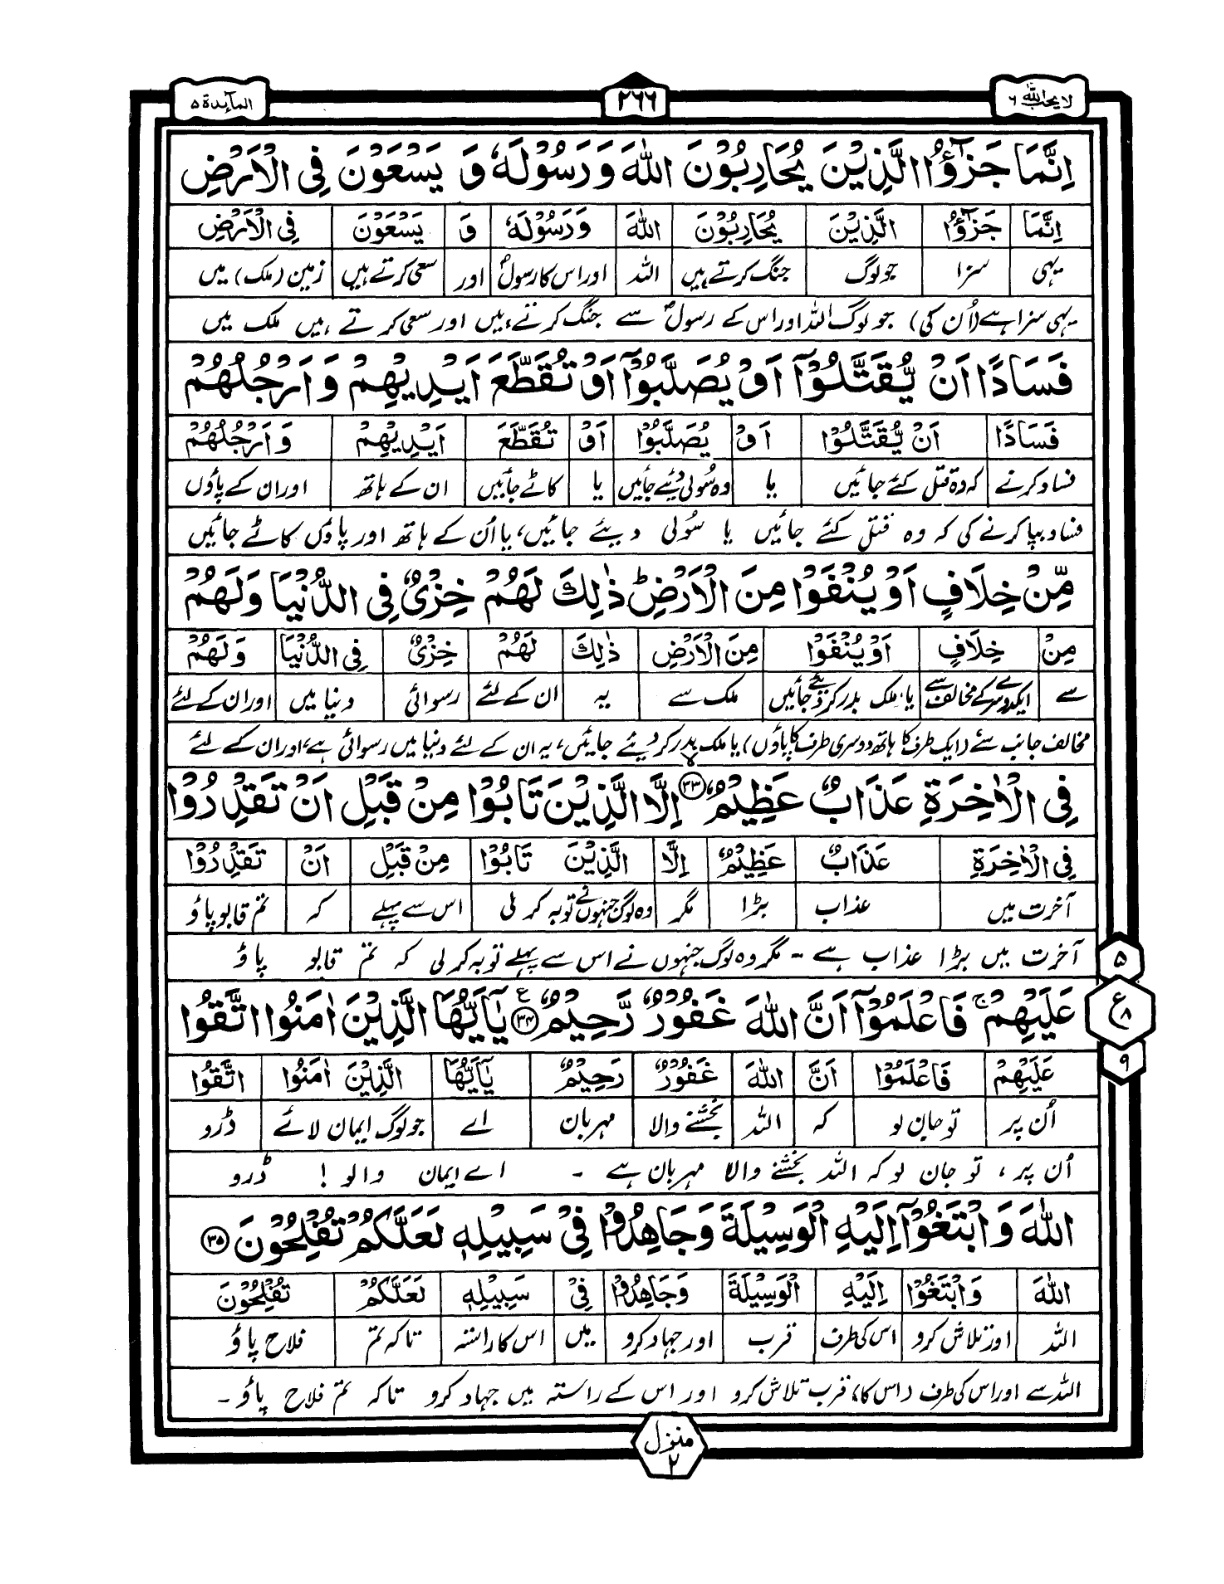 لا یحب اللہ ٦
٢٦٦
المآئدة ٥
اِنَّمَا جَزٰٓؤُا الَّذِیْنَ یُحَارِبُوْنَ اللّٰهَ وَ رَسُوْلَهٗ وَ یَسْعَوْنَ فِی الْاَرْضِ
اِنَّمَا جَزٰٓؤُا الَّذِیْنَ یُحَارِبُوْنَ اللّٰهَ وَرَسُوْلَهٗ وَ یَسْعَوْنَ فِی الْاَرْضِ
یہی سزا جو لوگ جنگ کرتے ہیں اللہ اور اس کا رسولؐ اور سعی کرتے ہیں زمین (ملک) میں
یہی سزا ہے (اُن کی) جو لوگ اللہ اور اس کے رسولؐ سے جنگ کرتے ہیں اور سعی کرتے ہیں ملک میں
فَسَادًا اَنْ یُّقَتَّلُوْۤا اَوْ یُصَلَّبُوْۤا اَوْ تُقَطَّعَ اَیْدِیْهِمْ وَ اَرْجُلُهُمْ
فَسَادًا اَنْ یُّقَتَّلُوْا اَوْ یُصَلَّبُوْا اَوْ تُقَطَّعَ اَیْدِیْهِمْ وَ اَرْجُلُهُمْ
فساد کرنے کہ وہ قتل کئے جائیں یا وہ سُولی دیئے جائیں یا کاٹے جائیں ان کے ہاتھ اور ان کے پاؤں
فساد بپا کرنے کی کہ وہ قتل کئے جائیں یا سُولی دیئے جائیں، یا اُن کے ہاتھ اور پاؤں کاٹے جائیں
مِّنْ خِلَافٍ اَوْ یُنْفَوْا مِنَ الْاَرْضِ ؕ ذٰلِكَ لَهُمْ خِزْیٌ فِی الدُّنْیَا وَ لَهُمْ
مِنْ خِلَافٍ اَوْ یُنْفَوْا مِنَ الْاَرْضِ ذٰلِكَ لَهُمْ خِزْیٌ فِی الدُّنْیَا وَ لَهُمْ
سے ایکدوسرے کے مخالف سے یا، ملک بدر کر دیئے جائیں ملک سے یہ ان کے لئے رسوائی دنیا میں اور ان کے لئے
مخالف جانب سے (ایک طرف کا ہاتھ دوسری طرف کا پاؤں) یا ملک بدر کر دیئے جائیں، یہ ان کے لئے دنیا میں رسوائی ہے، اور ان کے لئے
فِی الْاٰخِرَةِ عَذَابٌ عَظِیْمٌ ۙ﴿٣٣﴾ اِلَّا الَّذِیْنَ تَابُوْا مِنْ قَبْلِ اَنْ تَقْدِرُوْا
فِی الْاٰخِرَةِ عَذَابٌ عَظِیْمٌ اِلَّا الَّذِیْنَ تَابُوْا مِنْ قَبْلِ اَنْ تَقْدِرُوْا
آخرت میں عذاب بڑا مگر وہ لوگ جنہوں نے توبہ کر لی اس سے پہلے کہ تم قابو پاؤ
آخرت میں بڑا عذاب ہے۔ مگر وہ لوگ جنہوں نے اس سے پہلے توبہ کر لی کہ تم قابو پاؤ
عَلَیْهِمْ ۚ فَاعْلَمُوْۤا اَنَّ اللّٰهَ غَفُوْرٌ رَّحِیْمٌ ﴿٣٤﴾ ع یٰۤاَیُّهَا الَّذِیْنَ اٰمَنُوا اتَّقُوا
٥
ع ٨
٩
عَلَیْهِمْ فَاعْلَمُوْا اَنَّ اللّٰهَ غَفُوْرٌ رَحِیْمٌ یٰۤاَیُّهَا الَّذِیْنَ اٰمَنُوا اتَّقُوا
اُن پر تو جان لو کہ اللہ بخشنے والا مہربان اے جو لوگ ایمان لائے ڈرو
اُن پر، تو جان لو کہ اللہ بخشنے والا مہربان ہے۔ اے ایمان والو! ڈرو
اللّٰهَ وَ ابْتَغُوْۤا اِلَیْهِ الْوَسِیْلَةَ وَ جَاهِدُوْا فِیْ سَبِیْلِهٖ لَعَلَّكُمْ تُفْلِحُوْنَ ﴿٣٥﴾
اللّٰهَ وَ ابْتَغُوْا اِلَیْهِ الْوَسِیْلَةَ وَ جَاهِدُوْا فِیْ سَبِیْلِهٖ لَعَلَّكُمْ تُفْلِحُوْنَ
اللہ اور تلاش کرو اس کی طرف قرب اور جہاد کرو میں اس کا راستہ تاکہ تم فلاح پاؤ
اللہ سے اور اس کی طرف (اس کا) قرب تلاش کرو اور اس کے راستہ میں جہاد کرو تاکہ تم فلاح پاؤ۔
منزل ٢